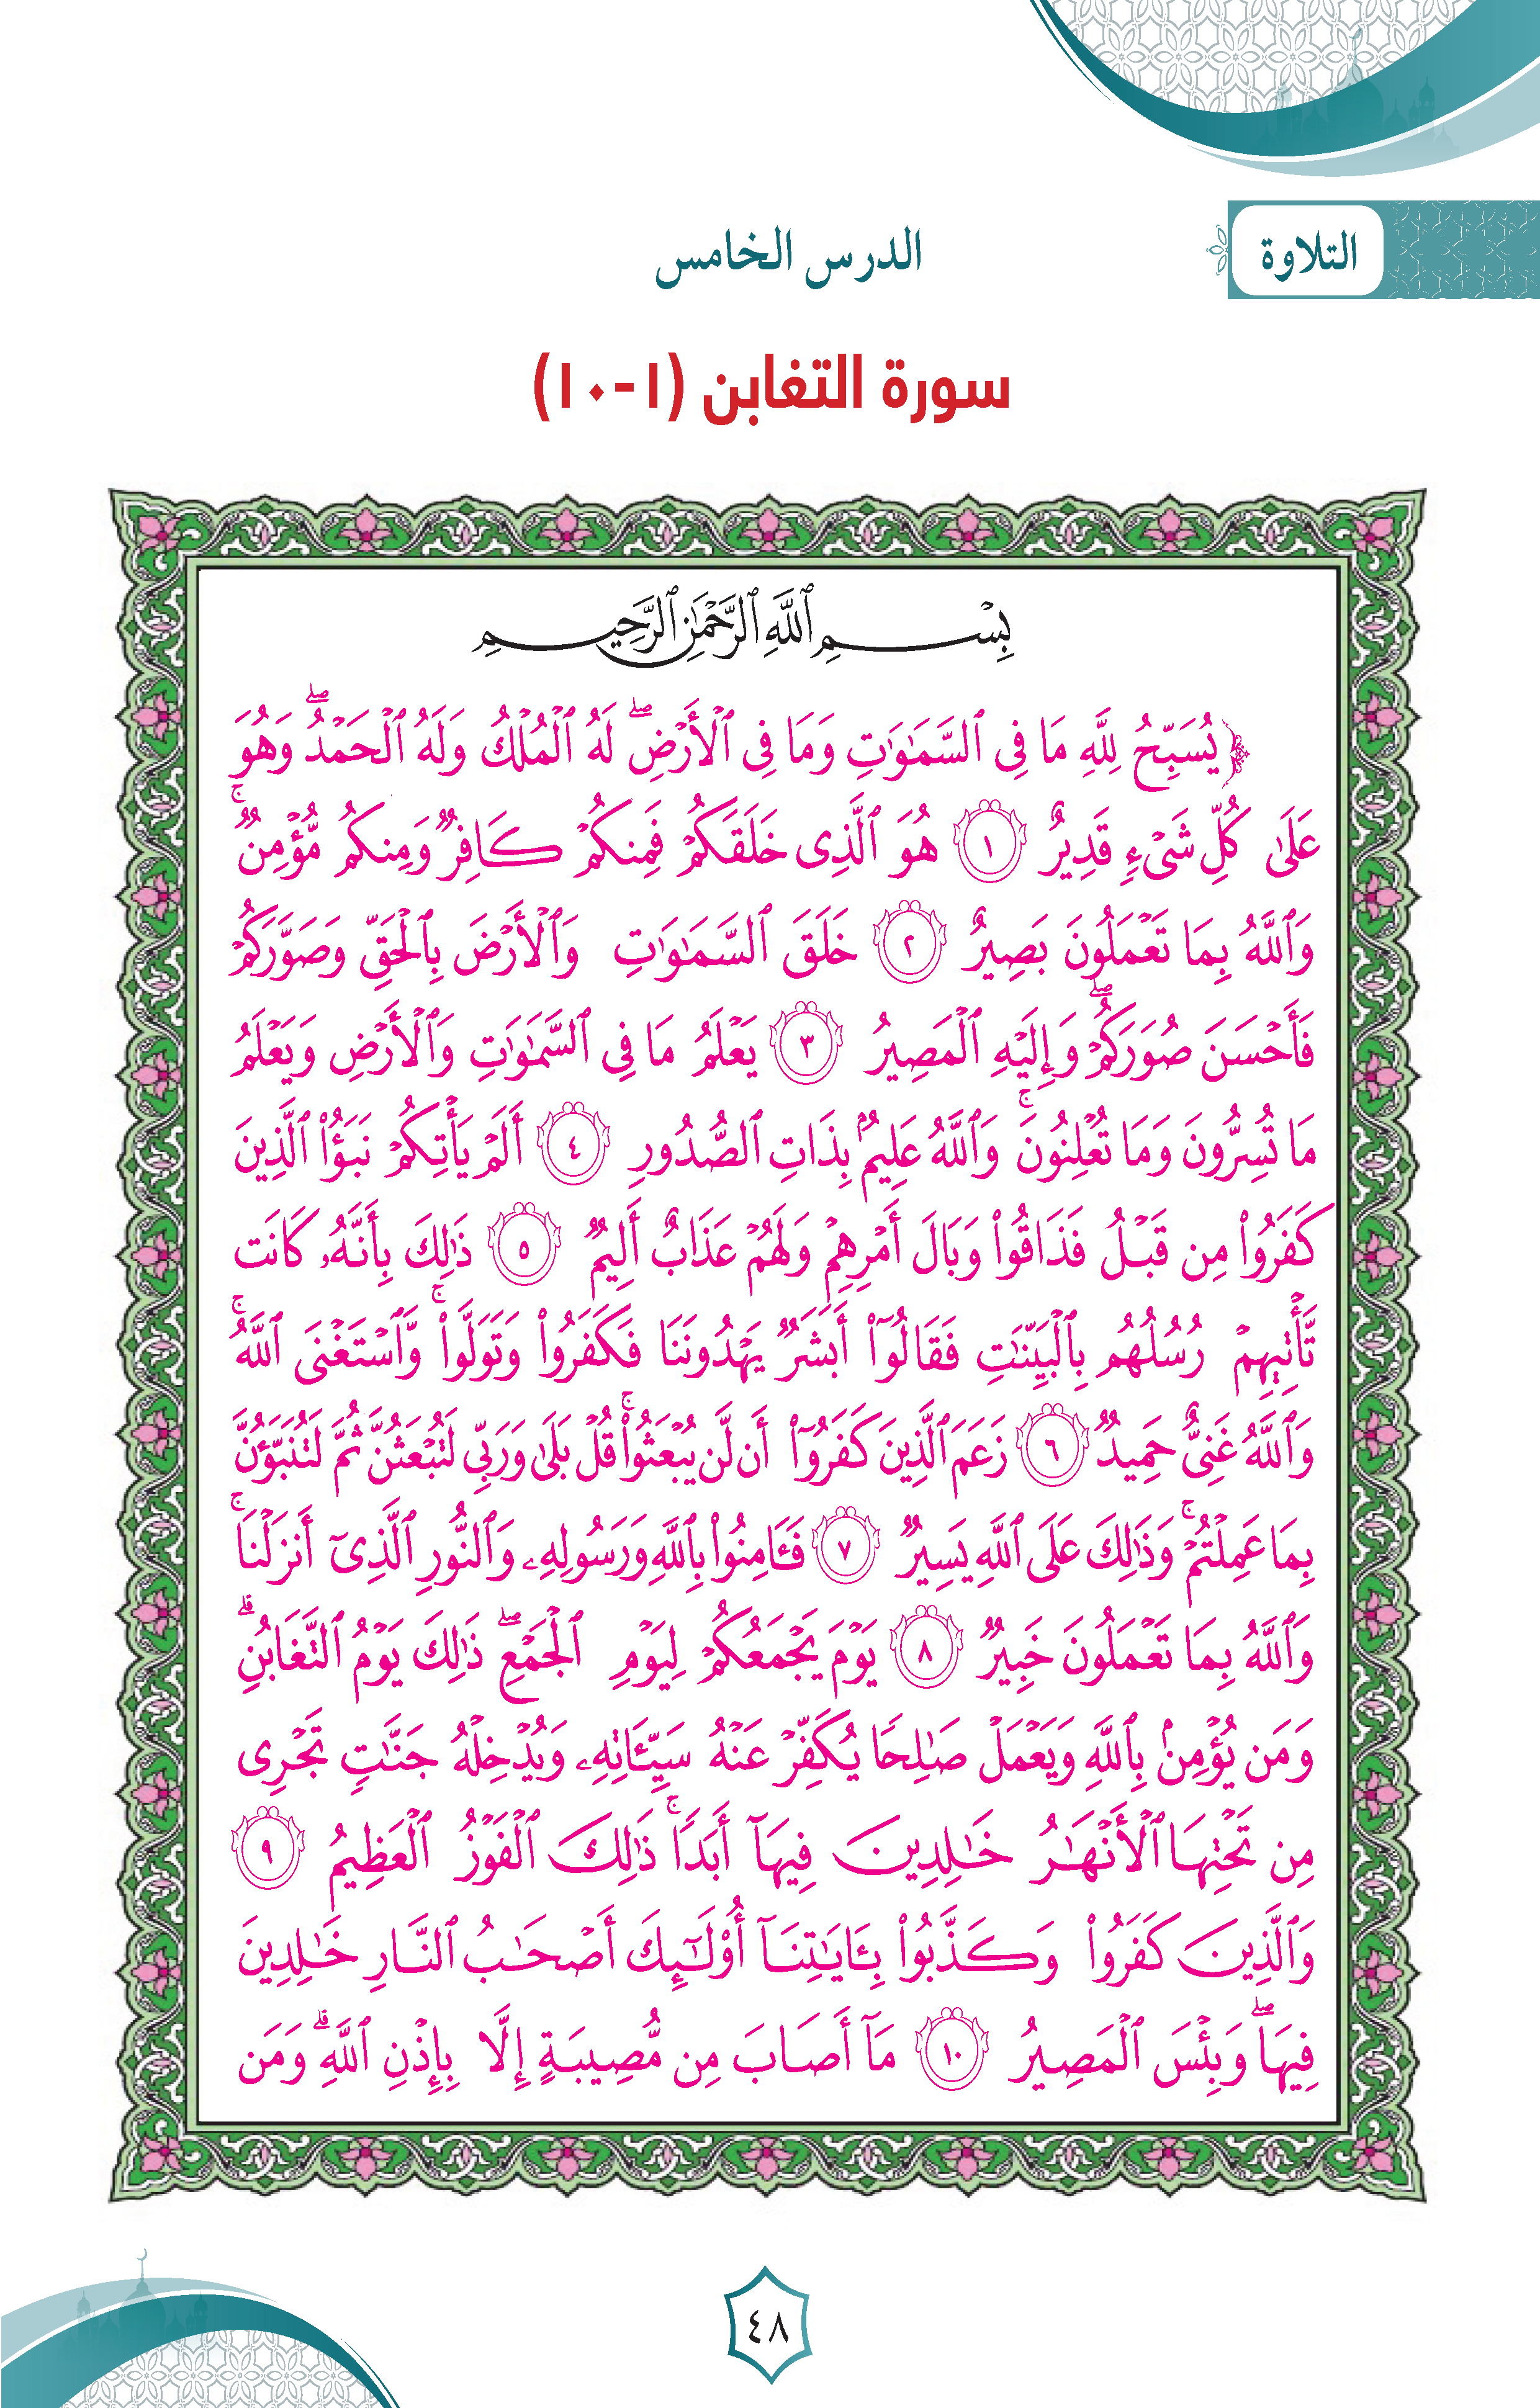 التلاوة
الدرس الخامس
سورة التغابن (١-١٠)
بِسْمِ ٱللَّهِ ٱلرَّحْمَٰنِ ٱلرَّحِيمِ
﴿يُسَبِّحُ لِلَّهِ مَا فِى ٱلسَّمَٰوَٰتِ وَمَا فِى ٱلْأَرْضِۖ لَهُ ٱلْمُلْكُ وَلَهُ ٱلْحَمْدُۖ وَهُوَ
عَلَىٰ كُلِّ شَىْءٍ قَدِيرٌ ١ هُوَ ٱلَّذِى خَلَقَكُمْ فَمِنكُمْ كَافِرٌ وَمِنكُم مُّؤْمِنٌۚ
وَٱللَّهُ بِمَا تَعْمَلُونَ بَصِيرٌ ٢ خَلَقَ ٱلسَّمَٰوَٰتِ وَٱلْأَرْضَ بِٱلْحَقِّ وَصَوَّرَكُمْ
فَأَحْسَنَ صُوَرَكُمْۖ وَإِلَيْهِ ٱلْمَصِيرُ ٣ يَعْلَمُ مَا فِى ٱلسَّمَٰوَٰتِ وَٱلْأَرْضِ وَيَعْلَمُ
مَا تُسِرُّونَ وَمَا تُعْلِنُونَۚ وَٱللَّهُ عَلِيمٌۢ بِذَاتِ ٱلصُّدُورِ ٤ أَلَمْ يَأْتِكُمْ نَبَؤُا۟ ٱلَّذِينَ
كَفَرُوا۟ مِن قَبْلُ فَذَاقُوا۟ وَبَالَ أَمْرِهِمْ وَلَهُمْ عَذَابٌ أَلِيمٌ ٥ ذَٰلِكَ بِأَنَّهُۥ كَانَت
تَّأْتِيهِمْ رُسُلُهُم بِٱلْبَيِّنَٰتِ فَقَالُوٓا۟ أَبَشَرٌ يَهْدُونَنَا فَكَفَرُوا۟ وَتَوَلَّوا۟ۚ وَّٱسْتَغْنَى ٱللَّهُۚ
وَٱللَّهُ غَنِىٌّ حَمِيدٌ ٦ زَعَمَ ٱلَّذِينَ كَفَرُوٓا۟ أَن لَّن يُبْعَثُوا۟ۚ قُلْ بَلَىٰ وَرَبِّى لَتُبْعَثُنَّ ثُمَّ لَتُنَبَّؤُنَّ
بِمَا عَمِلْتُمْۚ وَذَٰلِكَ عَلَى ٱللَّهِ يَسِيرٌ ٧ فَـَٔامِنُوا۟ بِٱللَّهِ وَرَسُولِهِۦ وَٱلنُّورِ ٱلَّذِىٓ أَنزَلْنَاۚ
وَٱللَّهُ بِمَا تَعْمَلُونَ خَبِيرٌ ٨ يَوْمَ يَجْمَعُكُمْ لِيَوْمِ ٱلْجَمْعِۖ ذَٰلِكَ يَوْمُ ٱلتَّغَابُنِۗ
وَمَن يُؤْمِنۢ بِٱللَّهِ وَيَعْمَلْ صَٰلِحًا يُكَفِّرْ عَنْهُ سَيِّـَٔاتِهِۦ وَيُدْخِلْهُ جَنَّٰتٍ تَجْرِى
مِن تَحْتِهَا ٱلْأَنْهَٰرُ خَٰلِدِينَ فِيهَآ أَبَدًاۚ ذَٰلِكَ ٱلْفَوْزُ ٱلْعَظِيمُ ٩
وَٱلَّذِينَ كَفَرُوا۟ وَكَذَّبُوا۟ بِـَٔايَٰتِنَآ أُو۟لَٰٓئِكَ أَصْحَٰبُ ٱلنَّارِ خَٰلِدِينَ
فِيهَاۖ وَبِئْسَ ٱلْمَصِيرُ ١٠ مَآ أَصَابَ مِن مُّصِيبَةٍ إِلَّا بِإِذْنِ ٱللَّهِۗ وَمَن
٤٨